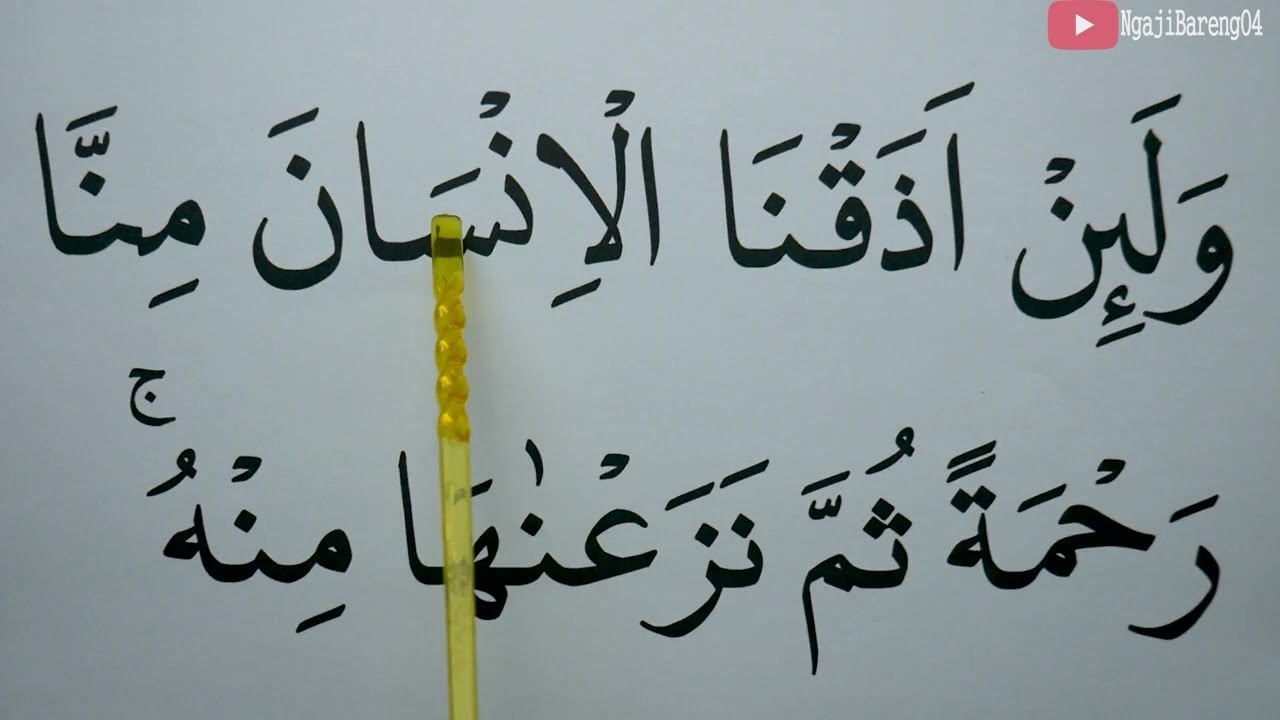 NgajiBareng04
وَلَىِٕنْ اَذَقْنَا الْاِنْسَانَ مِنَّا
رَحْمَةً ثُمَّ نَزَعْنٰهَا مِنْهُ ۚ